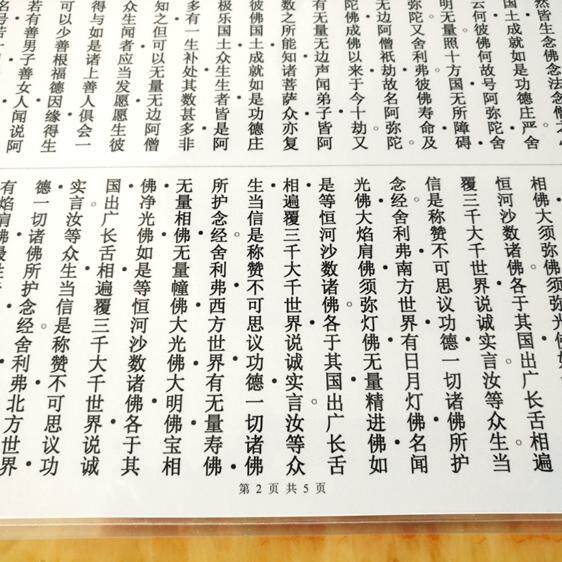 然皆生念佛念法念僧之
国土成就如是功德庄严舍
云何彼佛何故号阿弥陀舍
明无量照十方国无所障碍
弥陀又舍利弗彼佛寿命及
无边阿僧祇劫故名阿弥陀
陀佛成佛以来于今十劫又
有无量无边声闻弟子皆阿
数之所能知诸菩萨众亦复
彼佛国土成就如是功德庄
极乐国土众生生者皆是阿
多有一生补处其数甚多非
知之但可以无量无边阿僧
众生闻者应当发愿愿生彼
得与如是诸上善人俱会一
可以少善根福德因缘得生
若有善男子善女人闻说阿
名号若一
相佛大须弥佛须弥光佛
恒河沙数诸佛各于其国出广长舌相遍
覆三千大千世界说诚实言。汝等众生当
信是称赞不可思议功德一切诸佛所护
念经舍利弗南方世界有日月灯佛名闻
光佛大焰肩佛须弥灯佛无量精进佛如
是等恒河沙数诸佛各于其国出广长舌
相遍覆三千大千世界说诚实言。汝等众
生当信是称赞不可思议功德一切诸佛
所护念经。舍利弗西方世界有无量寿佛
无量相佛无量幢佛大光佛大明佛宝相
佛净光佛如是等恒河沙数诸佛各于其
国出广长舌相遍覆三千大千世界说诚
实言。汝等众生当信是称赞不可思议功
德一切诸佛所护念经舍利弗北方世界
有焰肩佛最胜
第 2 页 共 5 页